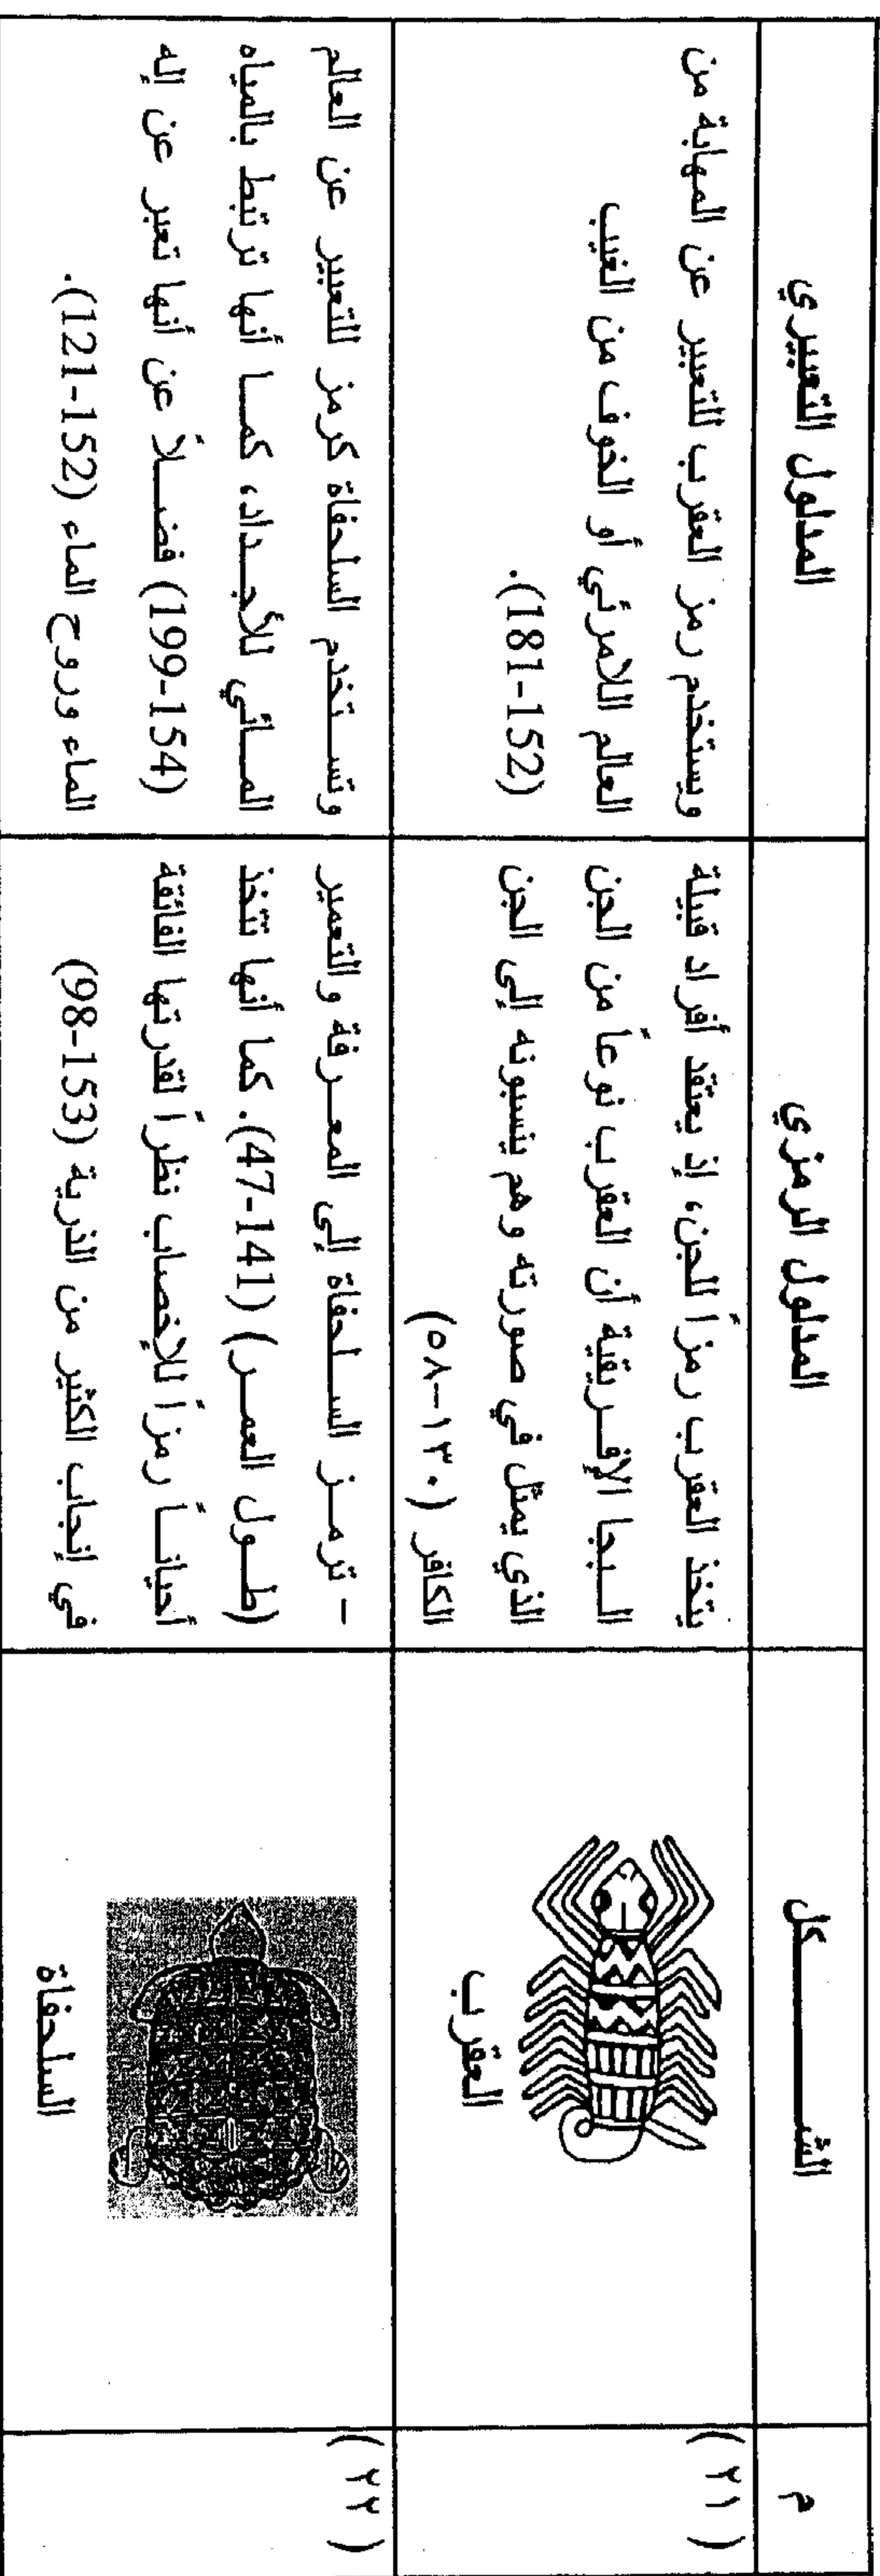 م
الشـــــــكل
المدلول الرمزي
المدلول التعبيري
(٢١)
العقرب
يتخذ العقرب رمزاً للجن، إذ يعتقد أفراد قبيلة
الـبجا الإفـريقية أن العقرب نوعاً من الجن
الذي يمثل في صورته وهم ينسبونه إلى الجن
الكافر (١٣٠-٥٨)
ويستخدم رمز العقرب للتعبير عن المهابة من
العالم اللامرئي أو الخوف من الغيب
(181-152).
(٢٢)
السلحفاة
- ترمـز السـلحفاة إلى المعـرفة والتعمير
(طـول العمـر) (47-141). كما أنها تتخذ
أحيانـاً رمزاً للإخصاب نظراً لقدرتها الفائقة
في إنجاب الكثير من الذرية (98-153)
وتسـتخدم السلحفاة كرمز للتعبير عن العالم
المـائي للأجـداد، كمـا أنها ترتبط بالمياه
(199-154) فضـلاً عن أنها تعبر عن إله
الماء وروح الماء (121-152).